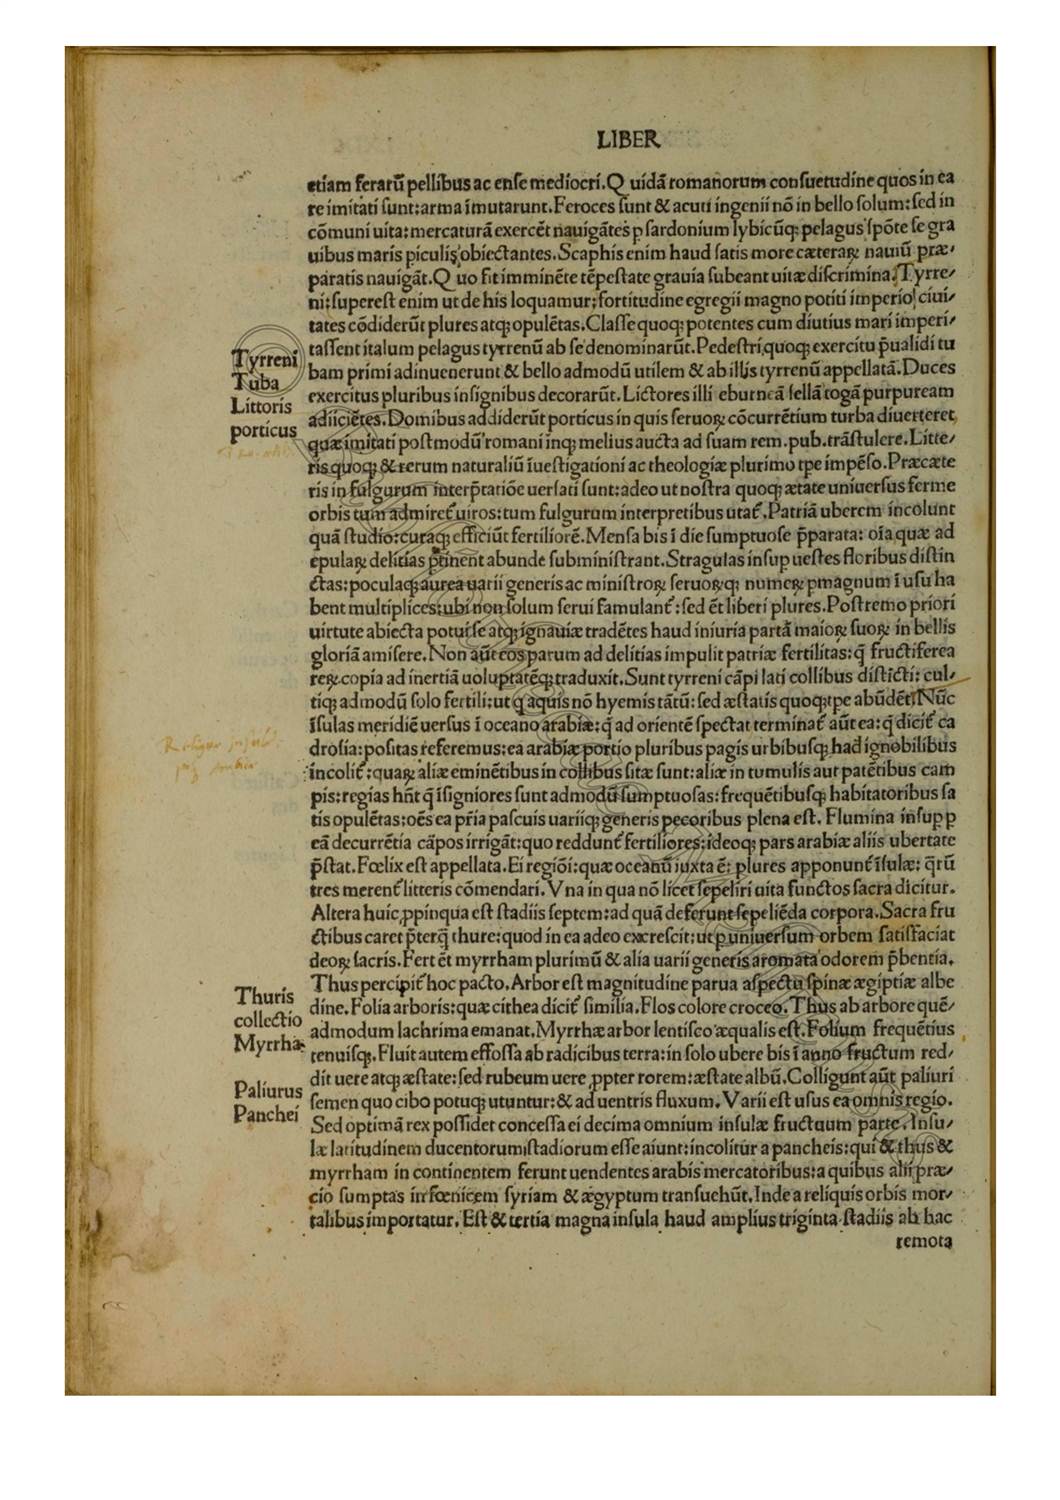 LIBER
etiam ferarū pellibus ac ense mediocri. Q uidā romanorum consuetudine quos in ea
re imitati sunt: arma īmutarunt. Feroces sunt & acuti ingenii nō in bello solum: sed in
cōmuni uita: mercaturā exercēt nauigātes p sardonium lybicūq; pelagus spōte se gra
uibus maris piculis obiectantes. Scaphis enim haud satis more cæteraꝝ nauiū præ-
paratis nauigāt. Q uo fit imminēte tēpestate grauia subeant uitæ discrimina. Tyrre-
ni: superest enim ut de his loquamur; fortitudine egregii magno potiti imperio ciui-
tates cōdiderūt plures atq; opulētas. Classe quoq; potentes cum diutius mari imperi-
Tyrreni
tassent italum pelagus tyrrenū ab se denominarūt. Pedestri quoq; exercitu p̄ualidi tu
Tuba
bam primi adinuenerunt & bello admodū utilem & ab illis tyrrenū appellatā. Duces
Littoris
exercitus pluribus insignibus decorarūt. Lictores illi eburneā sellā togā purpuream
porticus
adiiciētes. Domibus addiderūt porticus in quis seruoꝝ cōcurrētium turba diuerteret
quæ imitati postmodū romani inq; melius aucta ad suam rem. pub. trāstulere. Litte-
ris quoq; & rerum naturaliū īuestigationi ac theologiæ plurimo tpe impēso. Præcæte
ris in fulgurum interp̄tatiōe uersati sunt: adeo ut nostra quoq; ætate uniuersus ferme
orbis tum admiret̄ uiros: tum fulgurum interpretibus utat̄. Patriā uberem incolunt
quā studio: curaq; efficiūt fertiliorē. Mensa bis ī die sumptuose p̄parata: oīa quæ ad
epulaꝝ delitias ptinent abunde subministrant. Stragulas insup uestes floribus distin
ctas: poculaq; aurea uarii generis ac ministroꝝ seruoꝝq; numeꝝ pmagnum ī usu ha
bent multiplices: ubi non solum serui famulant̄: sed ēt liberi plures. Postremo priori
uirtute abiecta potui se atq; ignauiæ tradētes haud iniuria partā maioꝝ suoꝝ in bellis
gloriā amisere. Non aūt eos parum ad delitias impulit patriæ fertilitas: q̄ fructiferea
reꝝ copia ad inertiā uoluptatēq; traduxit. Sunt tyrreni cāpi lati collibus distīcti: cul-
tiq; admodū solo fertili: ut q aquis nō hyemis tātū: sed æstatis quoq; tpe abūdēt. Nūc
īsulas meridiē uersus ī oceano arabiæ: q̄ ad orientē spectat terminat̄ aūt ea: q̄ dicit̄ ca
drosia: positas referemus: ea arabiæ portio pluribus pagis urbibusq; had ignobilibus
incolit̄: quaꝝ aliæ eminētibus in collibus sitæ sunt: aliæ in tumulis aut patētibus cam
pis: regias hn̄t q̄ īsigniores sunt admodū sumptuosas: frequētibusq; habitatoribus sa
tis opulētas: oēs ea pr̄ia pascuis uariiq; generis pecoribus plena est. Flumina insup p
eā decurrētia cāpos irrigāt: quo reddunt̄ fertiliores: ideoq; pars arabiæ aliis ubertate
p̄stat. Fœlix est appellata. Ei regiōi: quæ oceanū iuxta ē: plures apponunt̄ īsulæ: q̄rū
tres merent̄ litteris cōmendari. Vna in qua nō licet sepeliri uita functos sacra dicitur.
Altera huic ꝓpinqua est stadiis septem: ad quā deferunt sepeliēda corpora. Sacra fru
ctibus caret p̄terq̄ thure: quod in ea adeo excrescit: ut p uniuersum orbem satisfaciat
deoꝝ sacris. Fert ēt myrrham plurimū & alia uarii generis aromata odorem p̄bentia.
Thuris
Thus percipit̄ hoc pacto. Arbor est magnitudine parua aspectu spinæ ægiptiæ albe
dine. Folia arboris: quæ cithea dicit̄ similia. Flos colore croceo. Thus ab arbore quē-
collectio
admodum lachrima emanat. Myrrhæ arbor lentisco æqualis est. Folium frequētius
Myrrhæ
tenuisq;. Fluit autem effossa ab radicibus terra: in solo ubere bis ī anno fructum red-
dit uere atq; æstate: sed rubeum uere ꝓpter rorem: æstate albū. Colligunt aūt paliuri
Paliurus
semen quo cibo potuq; utuntur: & ad uentris fluxum. Varii est usus ea omnis regio.
Panchei
Sed optimā rex possidet concessa ei decima omnium insulæ fructuum parte. Insu-
læ latitudinem ducentorum stadiorum esse aiunt: incolitur a pancheis: qui & thus &
myrrham in continentem ferunt uendentes arabis mercatoribus: a quibus alii præ-
cio sumptas in fœnicem syriam & ægyptum transuehūt. Inde a reliquis orbis mor-
talibus importatur. Est & tertia magna insula haud amplius triginta stadiis ab hac
remota